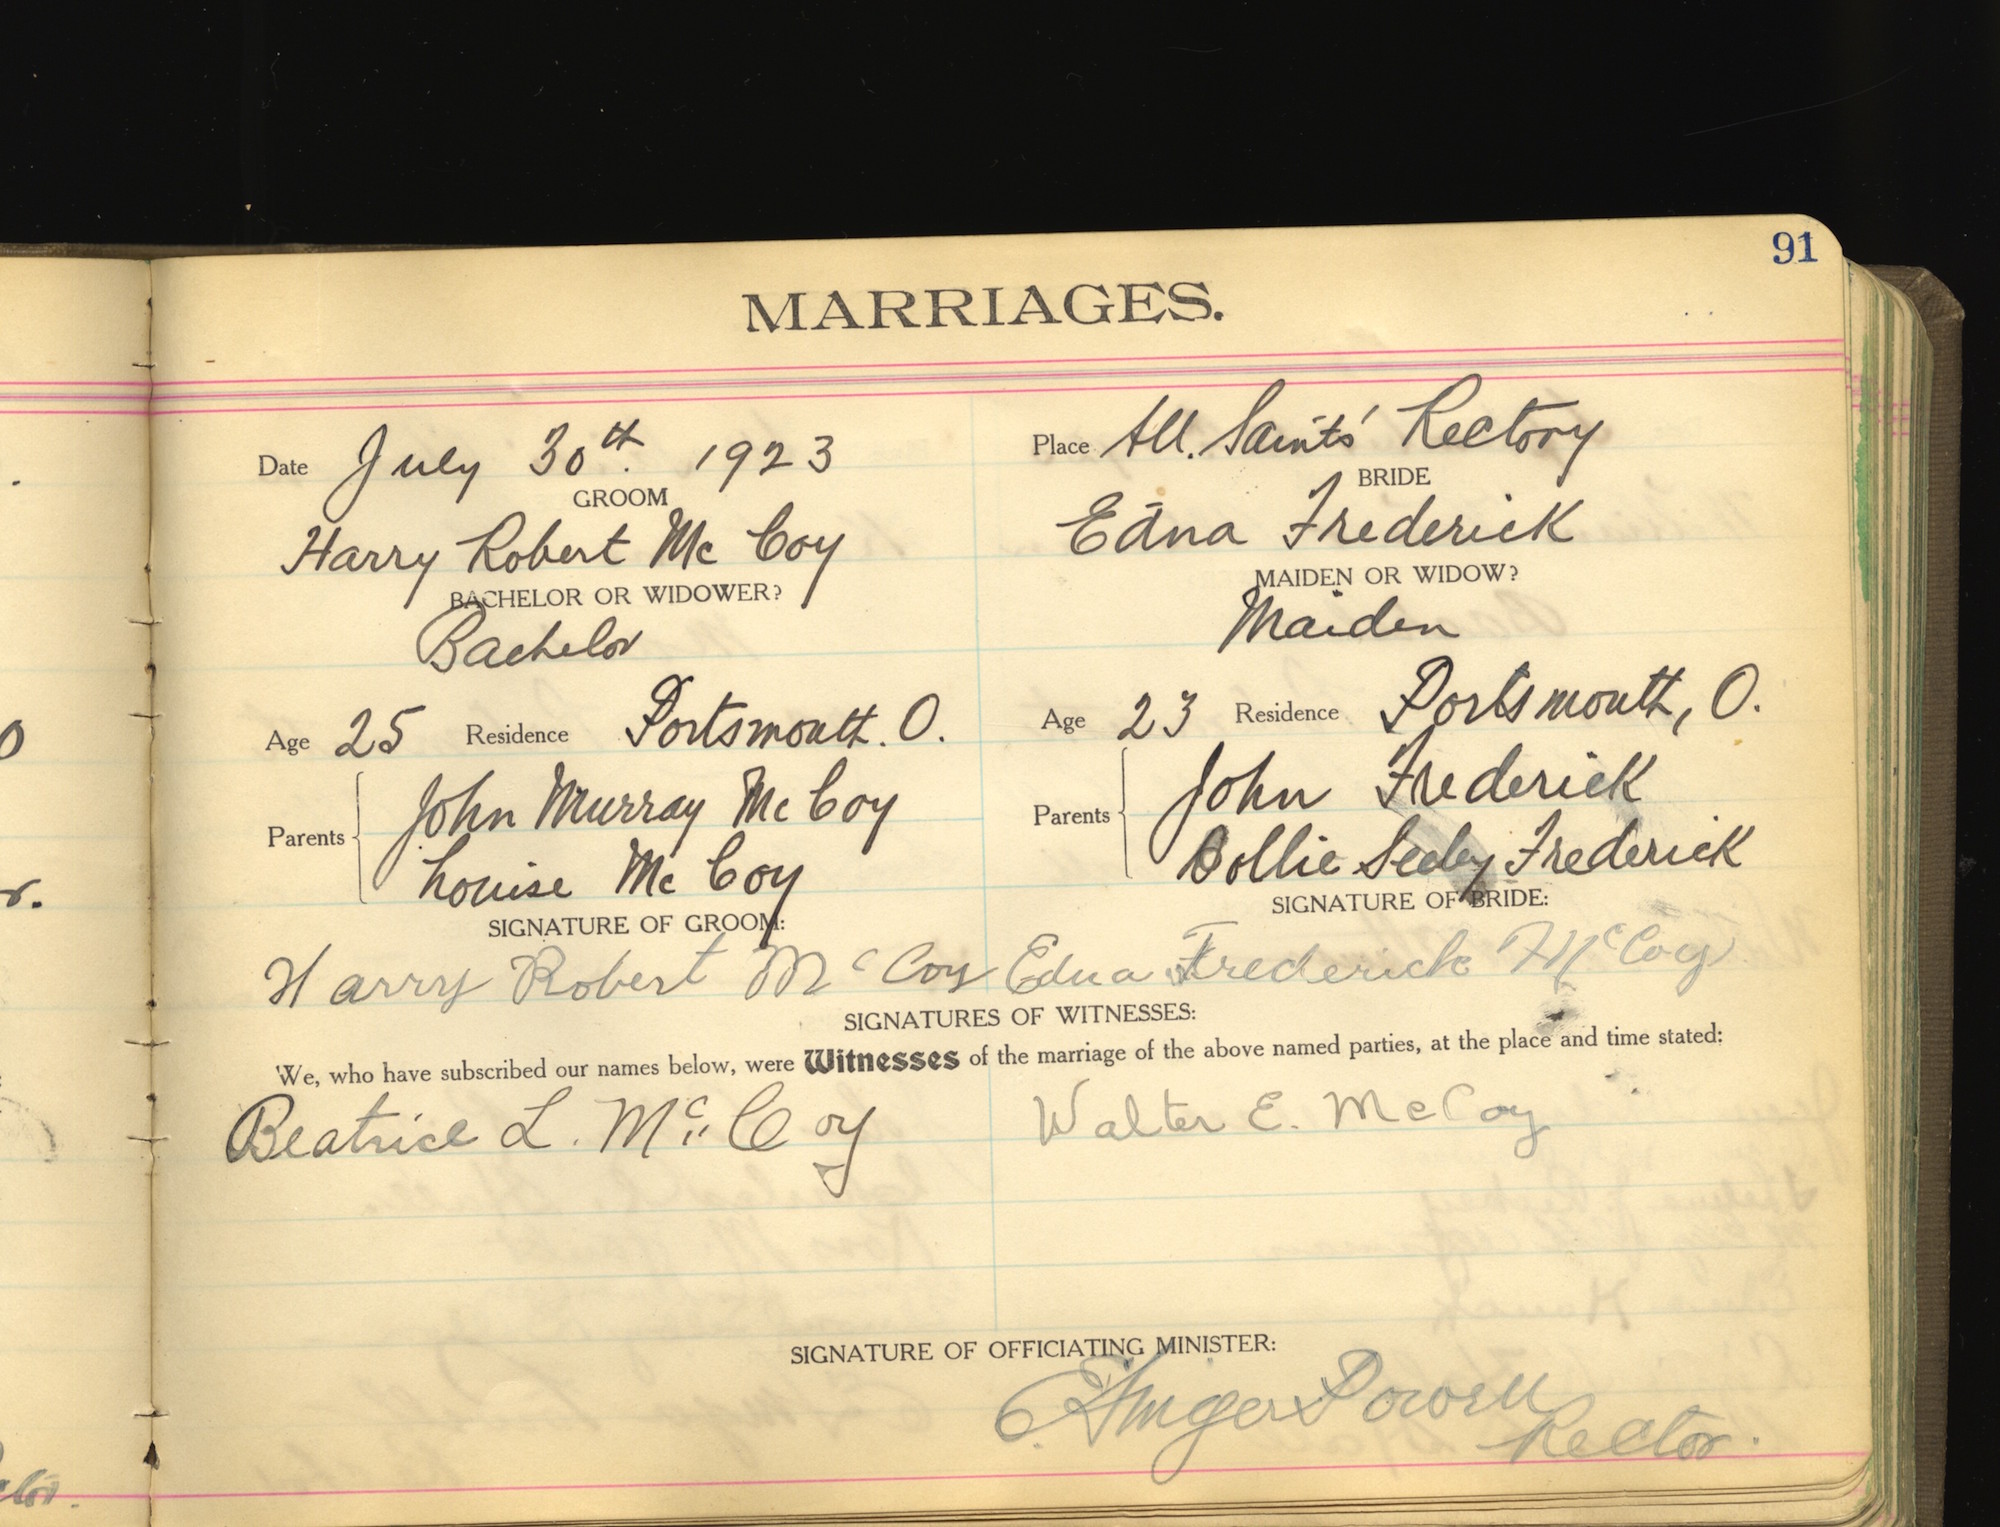 91
MARRIAGES.
Date July 30th. 1923
Place All. Saints' Rectory
GROOM
Harry Robert Mc Coy
BRIDE
Edna Frederick
BACHELOR OR WIDOWER?
Bachelor
MAIDEN OR WIDOW?
Maiden
Age 25 Residence Portsmouth. O.
Age 23 Residence Portsmouth, O.
Parents John Murray Mc Coy
Louise Mc Coy
Parents John Frederick
Dollie Seeley Frederick
SIGNATURE OF GROOM:
Harry Robert McCoy
SIGNATURE OF BRIDE:
Edna Frederick McCoy
SIGNATURES OF WITNESSES:
We, who have subscribed our names below, were Witnesses of the marriage of the above named parties, at the place and time stated:
Beatrice L. McCoy
Walter E. McCoy
SIGNATURE OF OFFICIATING MINISTER:
E. Ainger Powell
Rector.